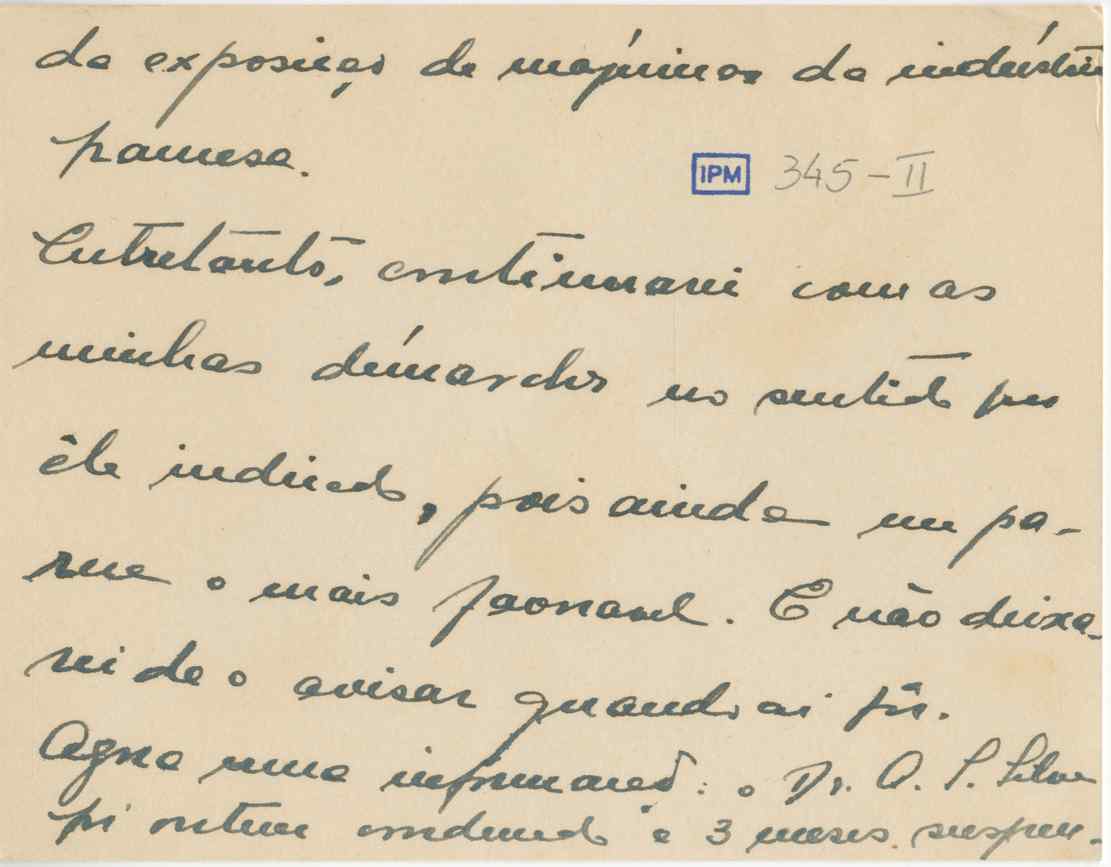 da exposição de máquinas da indústria
francesa.
IPM 345-II
Entretanto, continuarei com as
minhas démarches no sentido por
êle indicado, pois ainda me pa-
rece o mais favoravel. E não deixa-
rei de o avisar quando aí fôr.
Agora uma informação: o Dr. A. S. Silva
foi ontem condenado a 3 meses suspen-